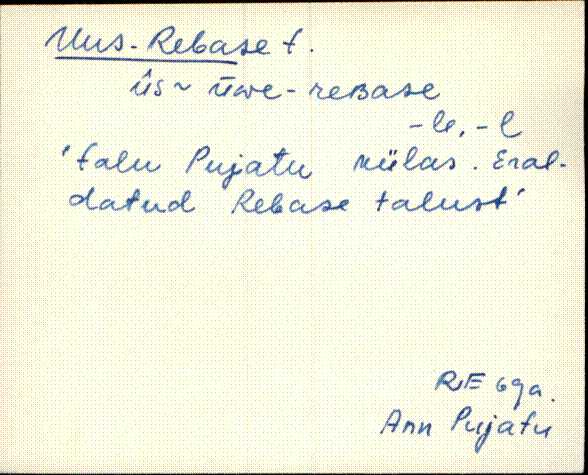 Uus-Rebase t.
üs ~ üwe-reʙase
-le, -l
'talu Pujatu külas. Eral-
datud Rebase talust'
RE 69a.
Ann Pujatu